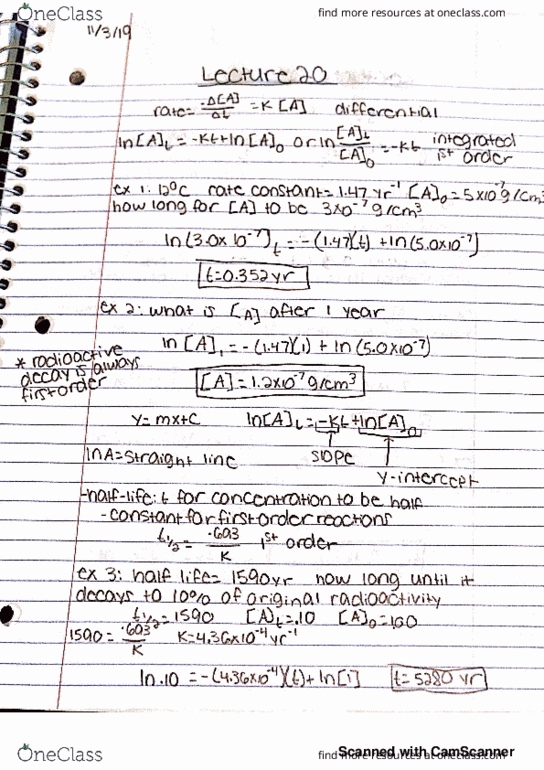 OneClass
find more resources at oneclass.com
11/3/19
Lecture 20
rate= -Δ[A]/Δt = K[A] differential
ln[A]t = -Kt+ln[A]0 or ln [A]t/[A]0 = -Kt integrated 1st order
ex 1: 12°C rate constant = 1.47 yr⁻¹ [A]0 = 5x10⁻⁷ g/cm³
how long for [A] to be 3x0⁻⁷ g/cm³
ln(3.0x10⁻⁷)t = -(1.47)(t) + ln(5.0x10⁻⁷)
t=0.352yr
ex 2: what is [A] after 1 year
ln[A]1 = -(1.47)(1) + ln(5.0x10⁻⁷)
* radioactive
decay is always
first order
[A] = 1.2x10⁻⁷ g/cm³
y=mx+c ln[A]t = -Kt+ln[A]0
lnA=straight line slope
y-intercept
-half-life: t for concentration to be half
-constant for first order reactions
t1/2 = .693/K 1st order
ex 3: half life= 1590yr how long until it
decays to 10% of original radioactivity
t1/2=1590 [A]t=.10 [A]0=1.00
1590= .693/K K=4.36x10⁻⁴ yr⁻¹
ln.10 = -(4.36x10⁻⁴)(t)+ln[1] t=5280 yr
Scanned with CamScanner
OneClass
find more resources at oneclass.com